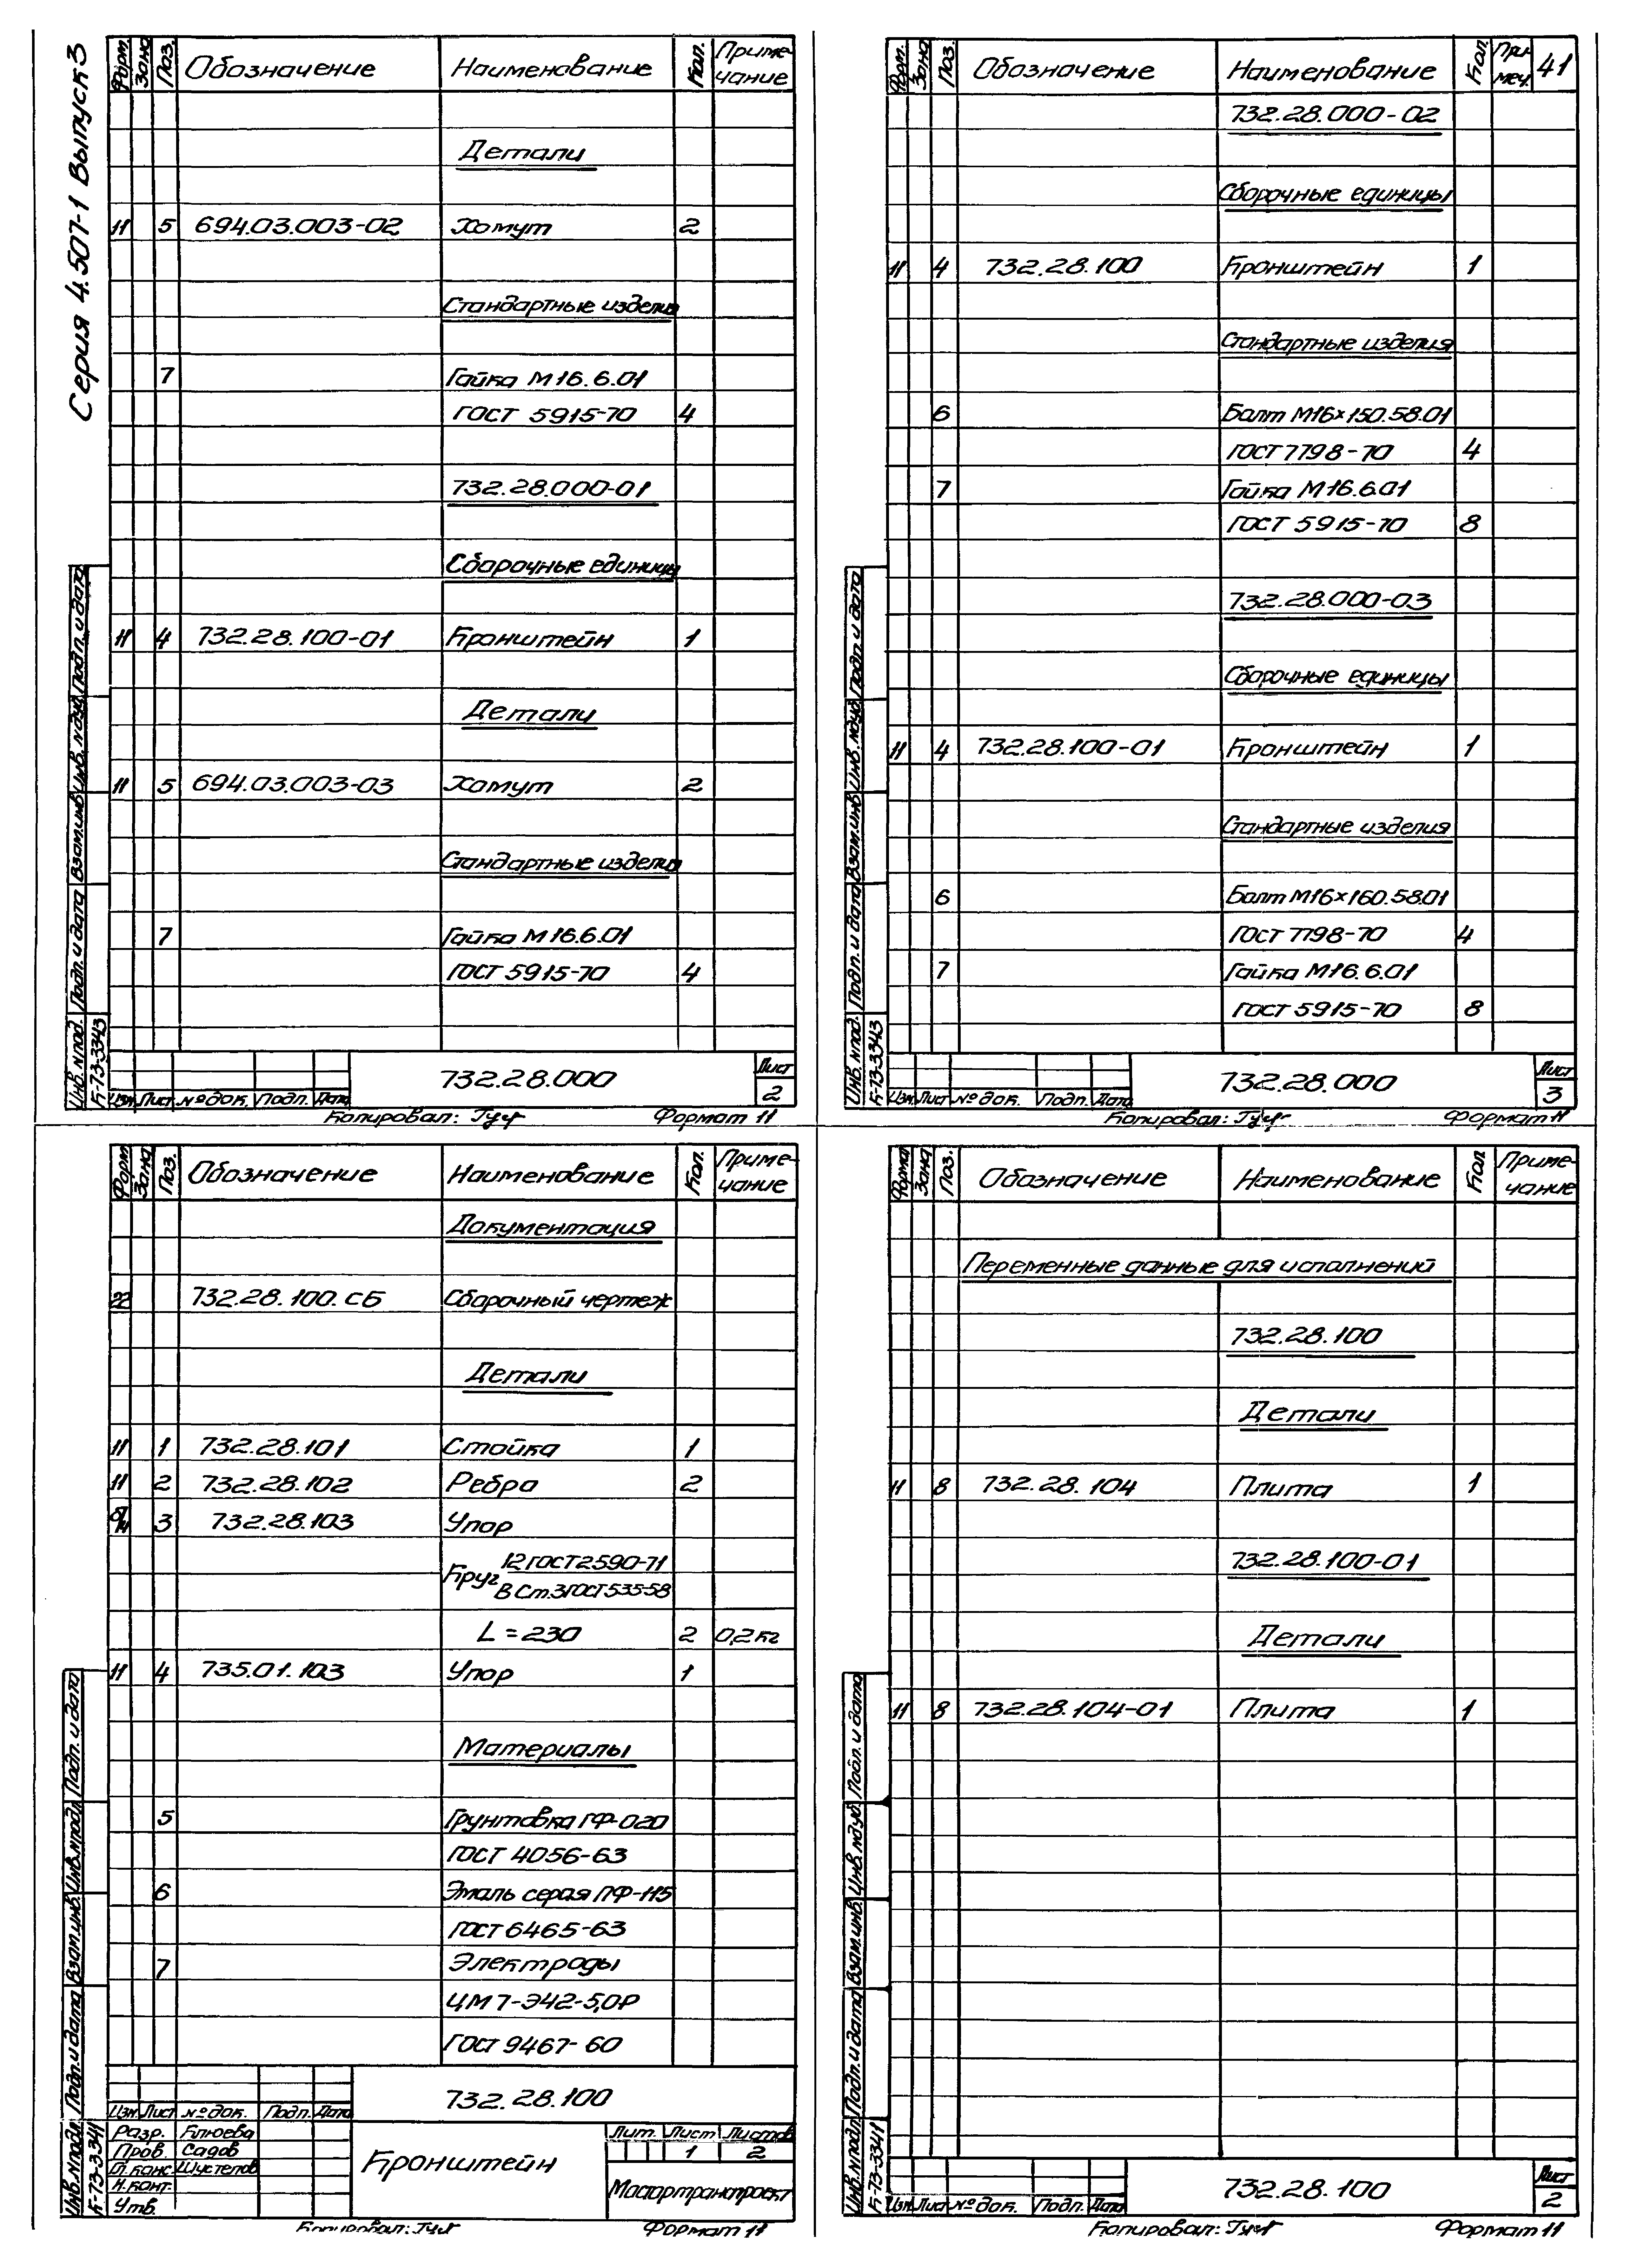 Серия 4.507-1 Выпуск 3
Форм. Зона Поз. Обозначение Наименование Кол. Приме-
чание
Детали
11 5 694.03.003-02 Хомут 2
Стандартные изделия
7 Гайка М16.6.01
ГОСТ 5915-70 4
732.28.000-01
Сборочные единицы
11 4 732.28.100-01 Кронштейн 1
Детали
11 5 694.03.003-03 Хомут 2
Стандартные изделия
7 Гайка М16.6.01
ГОСТ 5915-70 4
Инв. № под. Подп. и дата Взам. инв. Инв. № дуб. Подп. и дата
К-73-3343
732.28.000
Лист
2
Изм. Лист № док. Подп. Дата
Копировал: Формат 11
Форм. Зона Поз. Обозначение Наименование Кол. При
меч. 41
732.28.000-02
Сборочные единицы
11 4 732.28.100 Кронштейн 1
Стандартные изделия
6 Болт М16×150.58.01
ГОСТ 7798-70 4
7 Гайка М16.6.01
ГОСТ 5915-70 8
732.28.000-03
Сборочные единицы
11 4 732.28.100-01 Кронштейн 1
Стандартные изделия
6 Болт М16×160.58.01
ГОСТ 7798-70 4
7 Гайка М16.6.01
ГОСТ 5915-70 8
Инв. № под. Подп. и дата Взам. инв. Инв. № дуб. Подп. и дата
К-73-3343
732.28.000
Лист
3
Изм. Лист № док. Подп. Дата
Копировал: Формат 11
Форм Зона Поз. Обозначение Наименование Кол. Приме-
чание
Документация
22 732.28.100.СБ Сборочный чертеж
Детали
11 1 732.28.101 Стойка 1
11 2 732.28.102 Ребро 2
3 732.28.103 Упор
Круг 12 ГОСТ 2590-71
В Ст.3 ГОСТ 535-58
L = 230 2 0,2 кг
11 4 735.01.103 Упор 1
Материалы
5 Грунтовка ГФ-020
ГОСТ 4056-63
6 Эмаль серая ПФ-115
ГОСТ 6465-63
7 Электроды
ЦМ7-Э42-5,0Р
ГОСТ 9467-60
Инв. № подл. Подп. и дата Взам. инв. Инв. № подл. Подп. и дата
К-73-3341
732.28.100
Изм. Лист № док. Подп. Дата
Разр. Клюева
Пров. Садов
Гл. конс. Шустелов
Н. конт.
Утв.
Кронштейн
Лит. Лист Листов
1 2
Мосгортранспроект
Копировал: Формат 11
Форма Зона Поз. Обозначение Наименование Кол Приме-
чание
Переменные данные для исполнений
732.28.100
Детали
11 8 732.28.104 Плита 1
732.28.100-01
Детали
11 8 732.28.104-01 Плита 1
Инв. № подл. Подп. и дата Взам. инв. Инв. № дуб. Подп. и дата
К-73-3341
732.28.100
Лист
2
Изм. Лист № док. Подп. Дата
Копировал: Формат 11